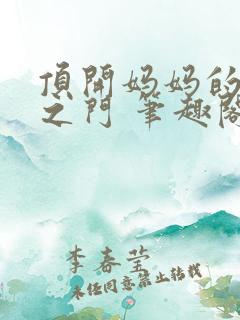 頂開妈妈的
之门 筆趣閣
李春莹
未经同意禁止转载